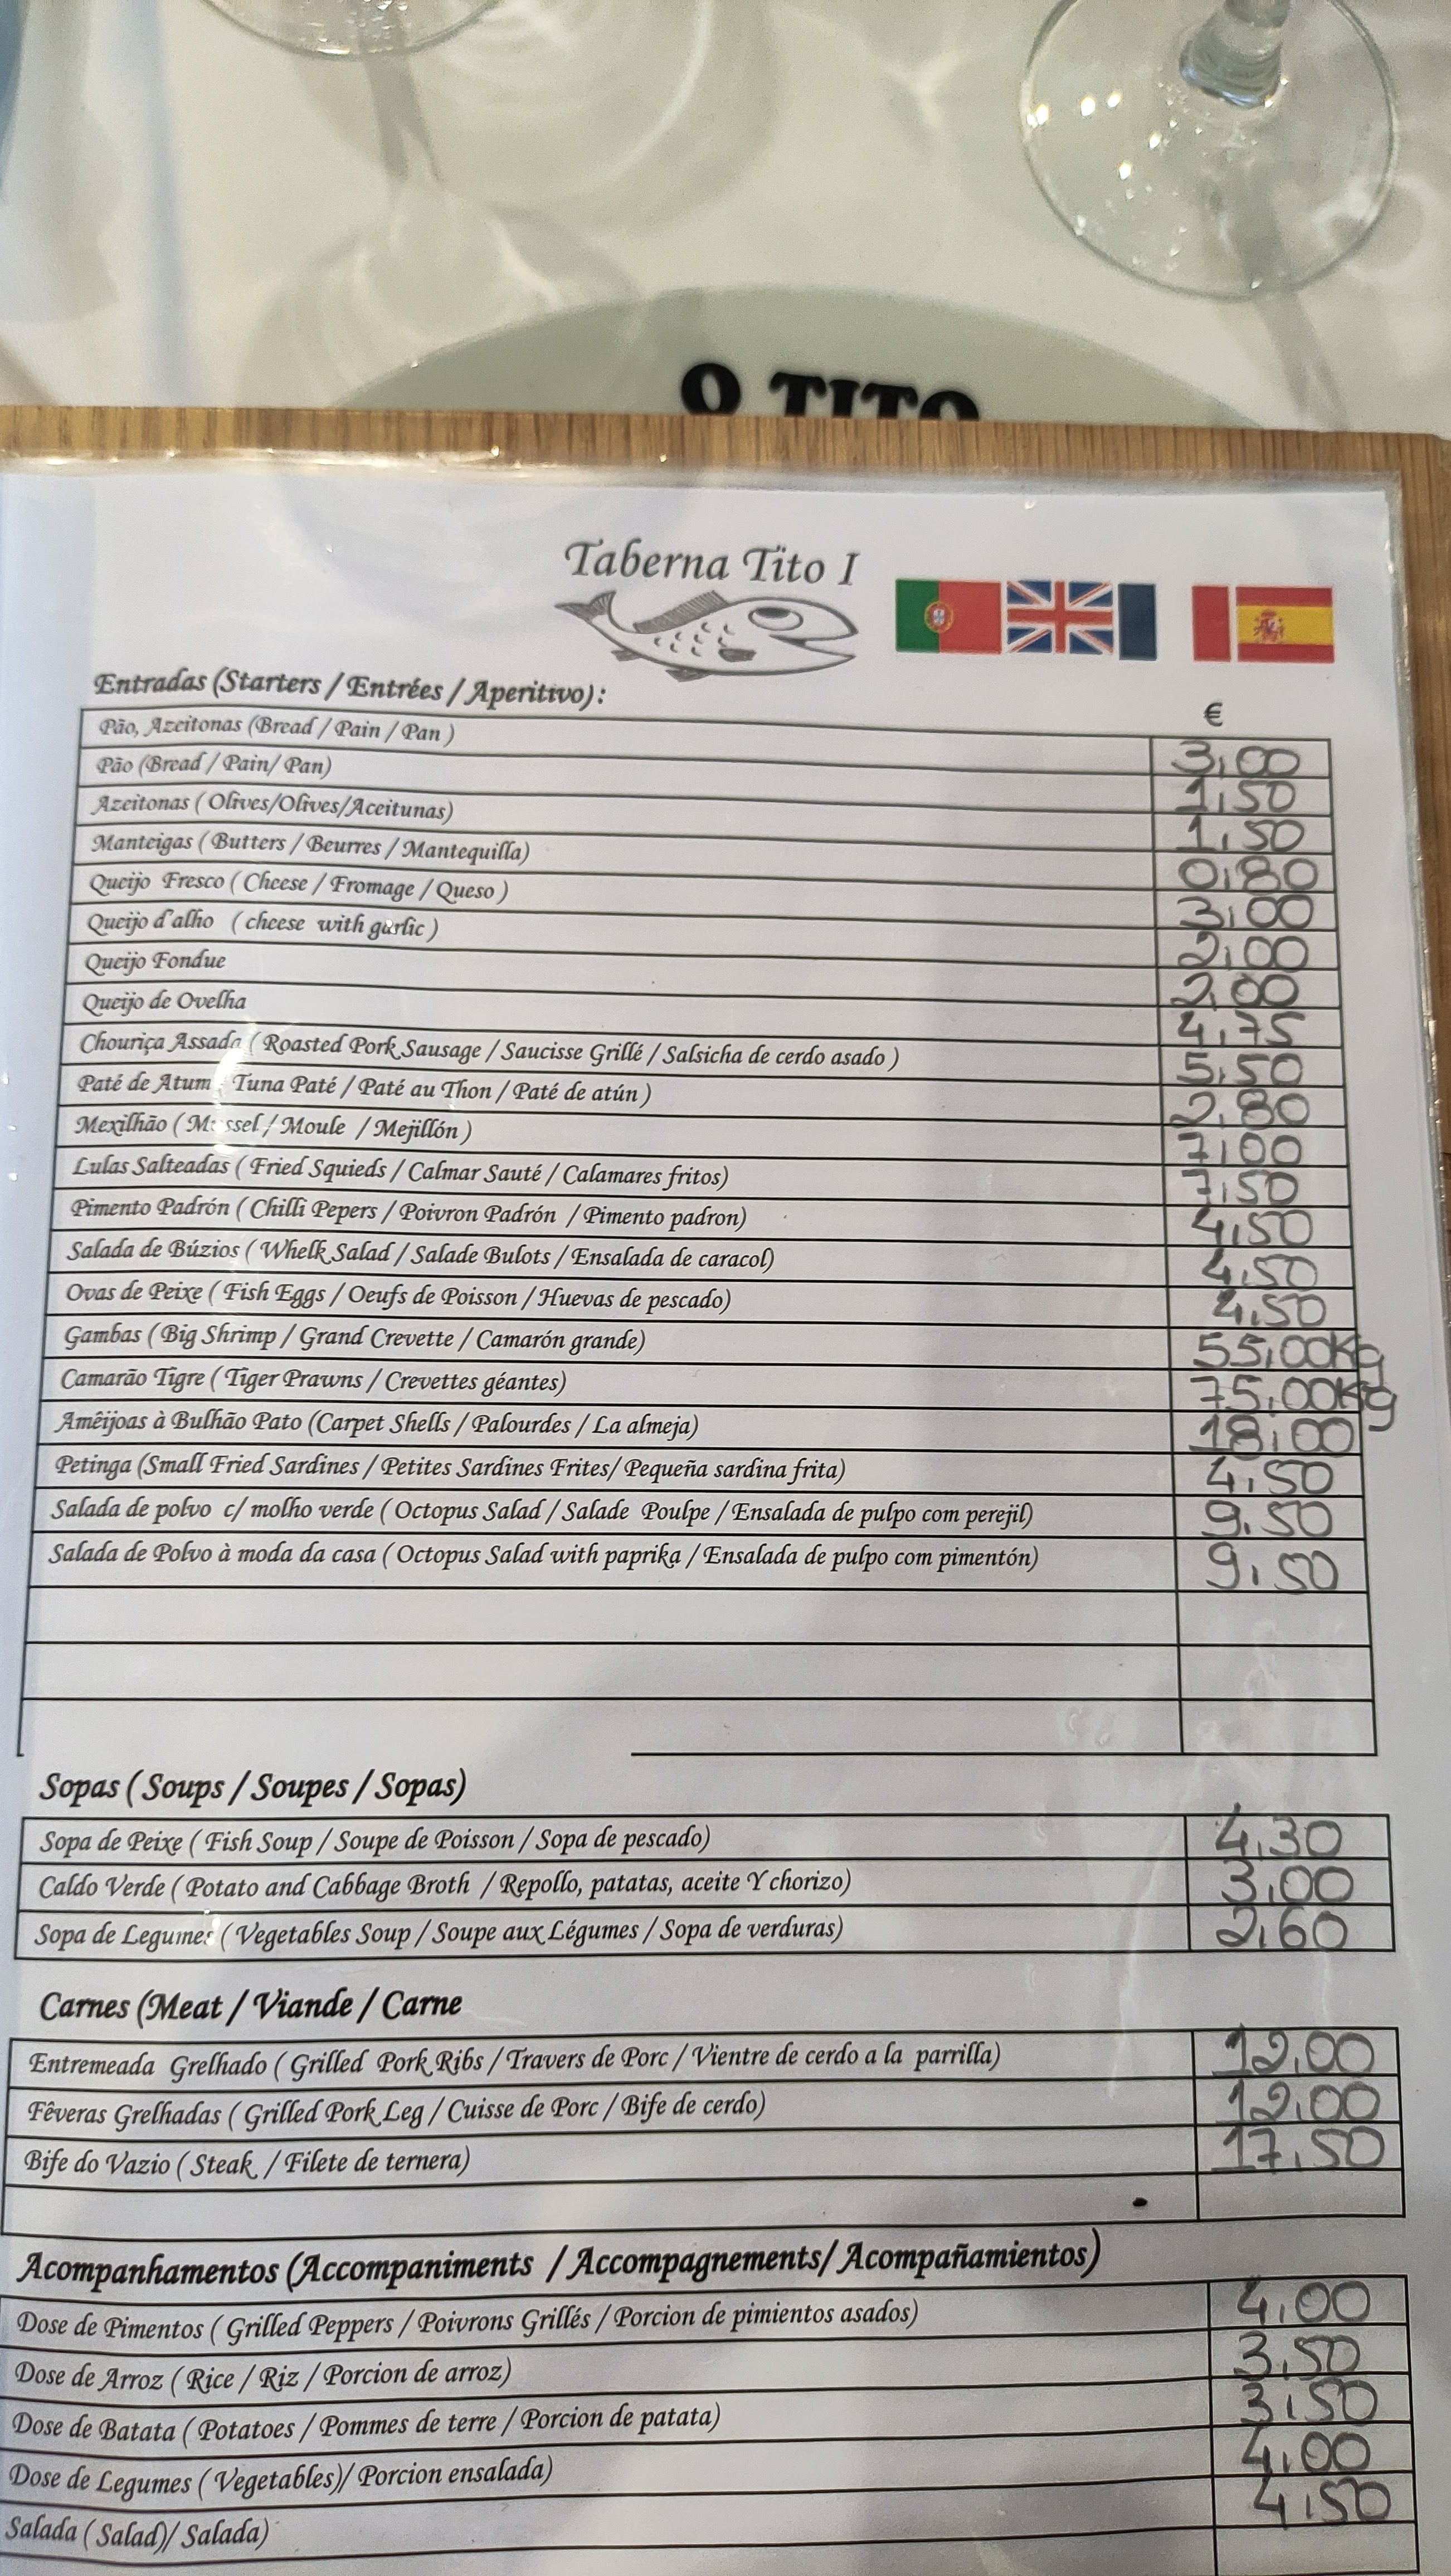 O TITO
Taberna Tito I
Entradas (Starters / Entrées / Aperitivo):
€
Pão, Azeitonas (Bread / Pain / Pan ) 3,00
Pão (Bread / Pain/ Pan) 1,50
Azeitonas ( Olives/Olives/Aceitunas) 1,50
Manteigas ( Butters / Beurres / Mantequilla) 0,80
Queijo Fresco ( Cheese / Fromage / Queso ) 3,00
Queijo d'alho ( cheese with garlic ) 2,00
Queijo Fondue 2,00
Queijo de Ovelha 4,75
Chouriça Assada ( Roasted Pork Sausage / Saucisse Grillé / Salsicha de cerdo asado ) 5,50
Paté de Atum Tuna Paté / Paté au Thon / Paté de atún ) 2,80
Mexilhão ( Mussel / Moule / Mejillón ) 7,00
Lulas Salteadas ( Fried Squieds / Calmar Sauté / Calamares fritos) 7,50
Pimento Padrón ( Chilli Pepers / Poivron Padrón / Pimento padron) 4,50
Salada de Búzios ( Whelk Salad / Salade Bulots / Ensalada de caracol) 4,50
Ovas de Peixe ( Fish Eggs / Oeufs de Poisson / Huevas de pescado) 4,50
Gambas ( Big Shrimp / Grand Crevette / Camarón grande) 55,00Kg
Camarão Tigre ( Tiger Prawns / Crevettes géantes) 75,00Kg
Amêijoas à Bulhão Pato (Carpet Shells / Palourdes / La almeja) 18,00
Petinga (Small Fried Sardines / Petites Sardines Frites/ Pequeña sardina frita) 4,50
Salada de polvo c/ molho verde ( Octopus Salad / Salade Poulpe / Ensalada de pulpo com perejil) 9,50
Salada de Polvo à moda da casa ( Octopus Salad with paprika / Ensalada de pulpo com pimentón) 9,50
Sopas ( Soups / Soupes / Sopas)
Sopa de Peixe ( Fish Soup / Soupe de Poisson / Sopa de pescado) 4,30
Caldo Verde ( Potato and Cabbage Broth / Repollo, patatas, aceite Y chorizo) 3,00
Sopa de Legumes ( Vegetables Soup / Soupe aux Légumes / Sopa de verduras) 2,60
Carnes (Meat / Viande / Carne
Entremeada Grelhado ( Grilled Pork Ribs / Travers de Porc / Vientre de cerdo a la parrilla) 12,00
Fêveras Grelhadas ( Grilled Pork Leg / Cuisse de Porc / Bife de cerdo) 12,00
Bife do Vazio ( Steak / Filete de ternera) 17,50
Acompanhamentos (Accompaniments / Accompagnements/ Acompañamientos)
Dose de Pimentos ( Grilled Peppers / Poivrons Grillés / Porcion de pimientos asados) 4,00
Dose de Arroz ( Rice / Riz / Porcion de arroz) 3,50
Dose de Batata ( Potatoes / Pommes de terre / Porcion de patata) 3,50
Dose de Legumes ( Vegetables)/ Porcion ensalada) 4,00
Salada ( Salad)/ Salada) 4,50